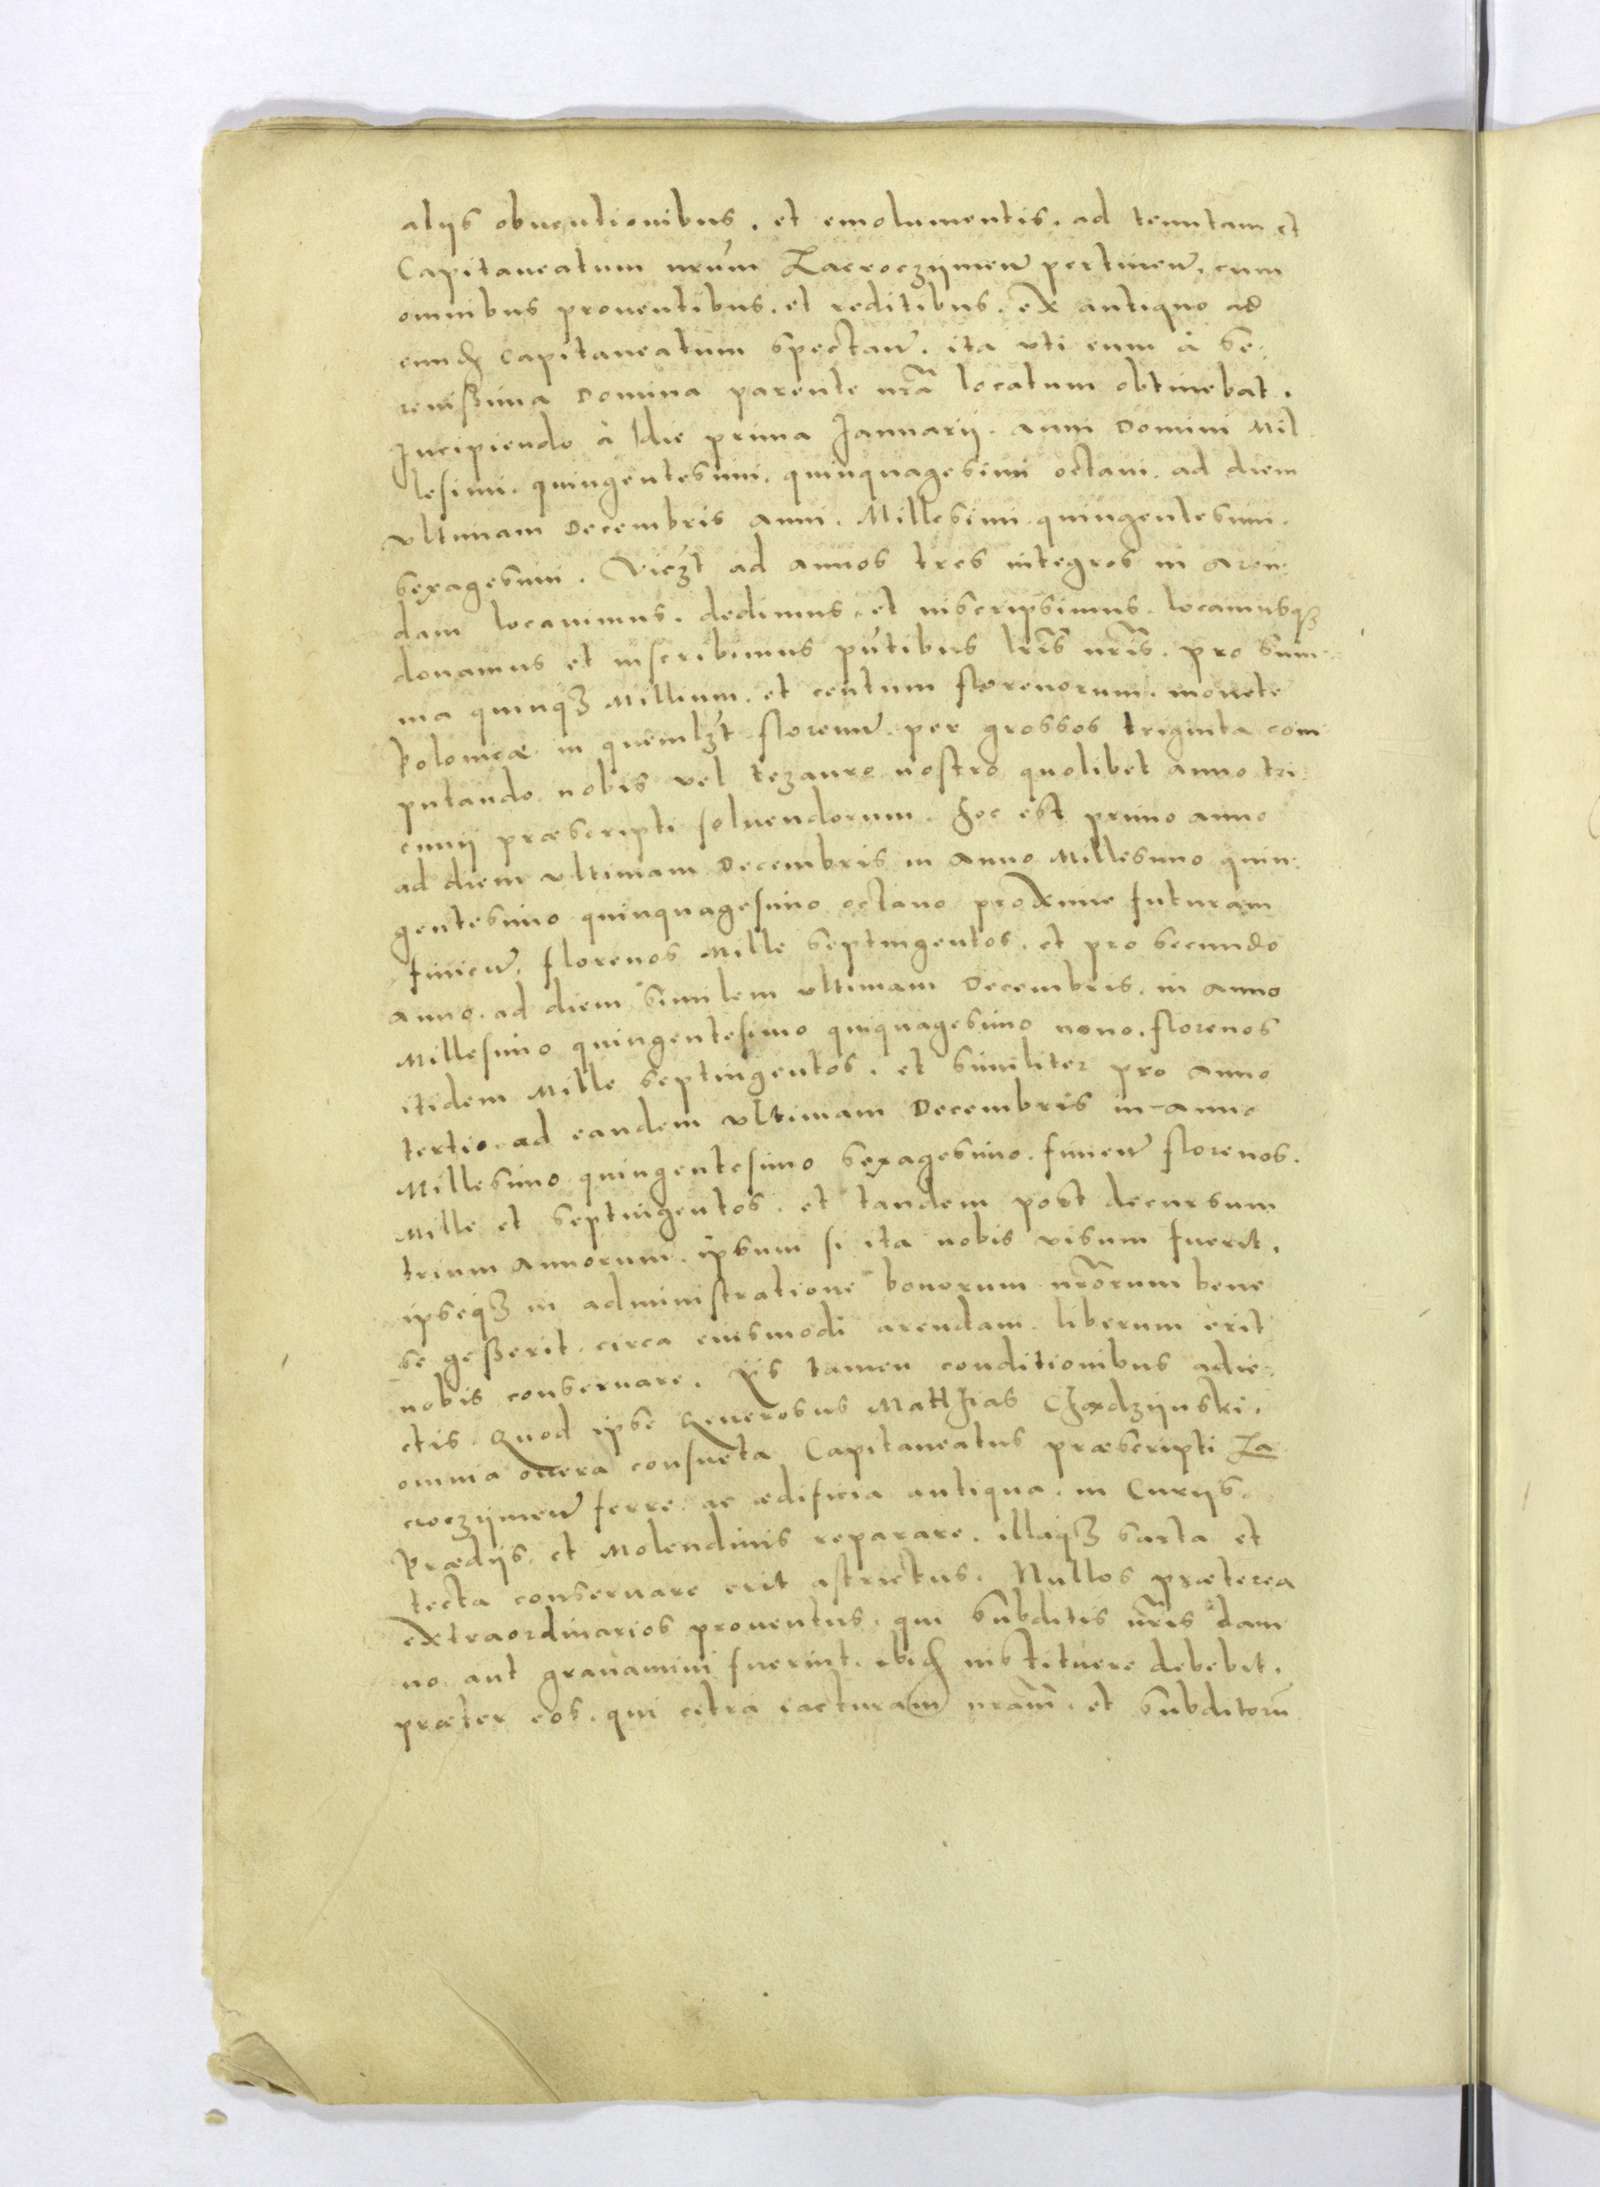 alijs obuentionibus. et emolumentis. ad tenutam et
Capitaneatum nrũm Zacroczijmen̄ pertinen̄. cum
omnibus prouentibus. et reditibus. ex antiquo ad
eund̄ Capitaneatum spectan̄. ita vti eum à Se-
renißima Domina parente nr̃a locatum obtinebat.
Incipiendo à die prima Januarij. anni Domini Mil-
lesimi. quingentesimi. quinquagesimi octaui. ad diem
vltimam Decembris anni. Millesimi quingentesimi.
sexagesimi. Viczt ad annos tres integros in aren-
dam locauimus. dedimus. et inscripsimus. locamusqȝ
donamus et inscribimus pñtibus lr̃is nr̃is. pro sum-
ma quinqȝ Millium. et centum florenorum. monete
Polonicæ in quemlȝt floren̄ per grossos triginta com
putando nobis vel tezauro nostro quolibet anno tri-
ennij præscripti soluendorum. hoc est primo anno
ad diem vltimam Decembris in Anno Millesimo quin-
gentesimo quinquagesimo octauo proxime futuram
finien̄. florenos Mille septingentos. et pro secundo
Anno. ad diem similem vltimam Decembris. in anno
Millesimo quingentesimo quiquagesimo nono. florenos
itidem Mille septingentos. et similiter pro Anno
tertio. ad eandem vltimam Decembris in anno
Millesimo quingentesimo sexagesimo. finien̄ florenos.
Mille et septingentos. et tandem post decursum
trium Annorum. ipsum si ita nobis visum fuerit.
ipseqȝ in administratione bonorum nr̃orum bene
se geßerit. circa eiusmodi arendam. liberum erit
nobis conseruare. Ijs tamen conditionibus adie-
ctis. Quod ipse Generosus Matthias Chodzijnski.
omnia onera consueta Capitaneatus præscripti Za
croczijmen̄ ferre. ac ædificia antiqua. in Curijs.
Prædijs. et Molendinis reparare. illaqȝ sarta et
tecta conseruare erit astrictus. Nullos præterea
extraordinarios prouentus. qui subditis nr̃is dam
no aut grauamini fuerint. ibid̄ instituere debebit.
præter eos. qui citra iacturam nr̃am. et subditorũ